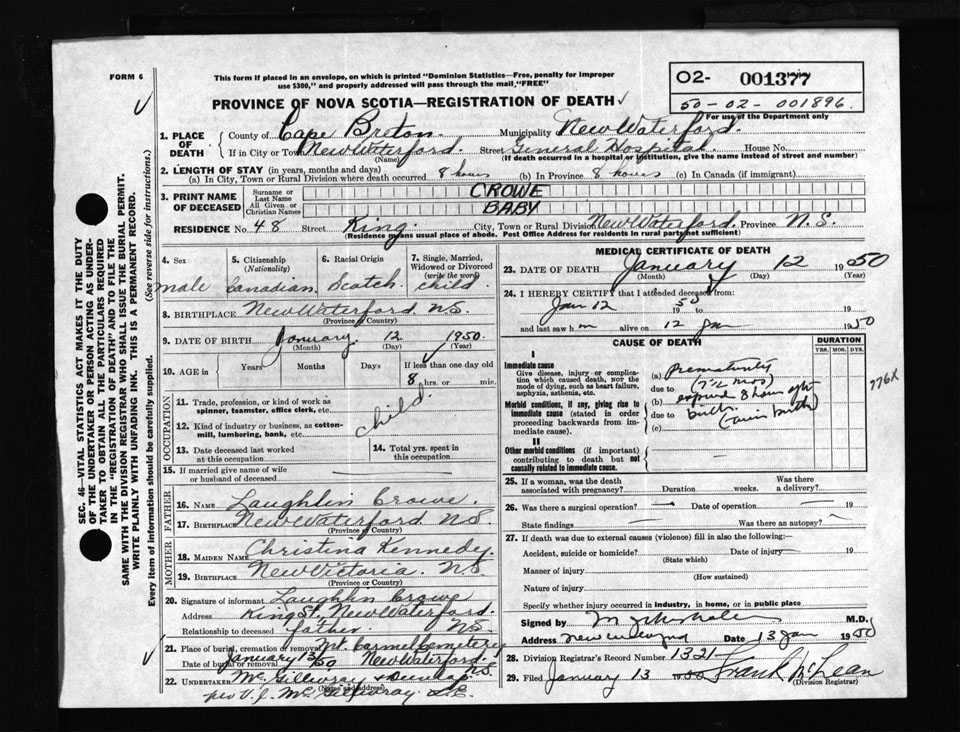 FORM 6
This form if placed in an envelope, on which is printed "Dominion Statistics—Free, penalty for improper
use $300," and properly addressed will pass through the mail, "FREE"
O2- 001377
50-02-001896
For use of the Department only
PROVINCE OF NOVA SCOTIA—REGISTRATION OF DEATH
1. PLACE OF DEATH
County of Cape Breton Municipality New Waterford.
If in City or Town New Waterford. Street General Hospital. House No.
(Name) (If death occurred in a hospital or institution, give the name instead of street and number)
2. LENGTH OF STAY (in years, months and days)
(a) In City, Town or Rural Division where death occurred 8 hours (b) In Province 8 hours (c) In Canada (if immigrant)
3. PRINT NAME OF DECEASED
Surname or Last Name CROWE
All Given or Christian Names BABY
RESIDENCE No. 48 Street King. City, Town or Rural Division New Waterford. Province N.S.
(Residence means usual place of abode. Post Office Address for residents in rural parts not sufficient)
4. Sex
male
5. Citizenship
(Nationality)
Canadian
6. Racial Origin
Scotch
7. Single, Married,
Widowed or Divorced
(write the word)
child
8. BIRTHPLACE New Waterford NS.
(Province or Country)
9. DATE OF BIRTH January. 12 1950
(Month) (Day) (Year)
10. AGE in Years Months Days If less than one day old
8 hrs. or min.
OCCUPATION
11. Trade, profession, or kind of work as
spinner, teamster, office clerk, etc.
12. Kind of industry or business, as cotton-
mill, lumbering, bank, etc.
child.
13. Date deceased last worked
at this occupation
14. Total yrs. spent in
this occupation
15. If married give name of wife
or husband of deceased
FATHER
16. NAME Laughlin Crowe.
17. BIRTHPLACE New Waterford NS
(Province or Country)
MOTHER
18. MAIDEN NAME Christina Kennedy.
19. BIRTHPLACE New Victoria. NS
(Province or Country)
20. Signature of informant Laughlin Crowe
Address King St, New Waterford.
Relationship to deceased father. NS
21. Place of burial, cremation or removal Mt. Carmel Cemetery
Date of burial or removal January 13/50 New Waterford. N.S.
22. UNDERTAKER McGillivray + Dunlap
(Name and address)
per V.J. McGillivray
MEDICAL CERTIFICATE OF DEATH
23. DATE OF DEATH January 12 1950
(Month) (Day) (Year)
24. I HEREBY CERTIFY that I attended deceased from:
Jan 12 1950 to 19
and last saw him alive on 12 Jan 1950
CAUSE OF DEATH
DURATION
YRS. MOS. DYS.
I
Immediate cause
Give disease, injury or complica-
tion which caused death, NOT the
mode of dying, such as heart failure,
asphyxia, asthenia, etc.
Morbid conditions, if any, giving rise to
immediate cause (stated in order
proceeding backwards from im-
mediate cause).
(a) Prematurity
due to (7½ mos)
(b) expired 8 hours after
due to birth.
(c) (twin birth)
776X
II
Other morbid conditions (if important)
contributing to death but not
causally related to immediate cause.
25. If a woman, was the death
associated with pregnancy? Duration weeks. Was there
a delivery?
26. Was there a surgical operation? — Date of operation — 19
State findings Was there an autopsy?
27. If death was due to external causes (violence) fill in also the following:-
Accident, suicide or homicide? Date of injury 19
(State which)
Manner of injury
(How sustained)
Nature of injury
Specify whether injury occurred in industry, in home, or in public place
Signed by M.D.
Address New Waterford Date 13 Jan 1950
28. Division Registrar's Record Number 1321
29. Filed January 13 1950 Frank McLean
(Division Registrar)
SEC. 46—VITAL STATISTICS ACT MAKES IT THE DUTY
OF THE UNDERTAKER OR PERSON ACTING AS UNDER-
TAKER TO OBTAIN ALL THE PARTICULARS REQUIRED
IN THE "REGISTRATION OF DEATH" AND TO FILE THE
SAME WITH THE DIVISION REGISTRAR WHO SHALL ISSUE THE BURIAL PERMIT.
WRITE PLAINLY WITH UNFADING INK. THIS IS A PERMANENT RECORD.
Every item of information should be carefully supplied. (See reverse side for instructions.)